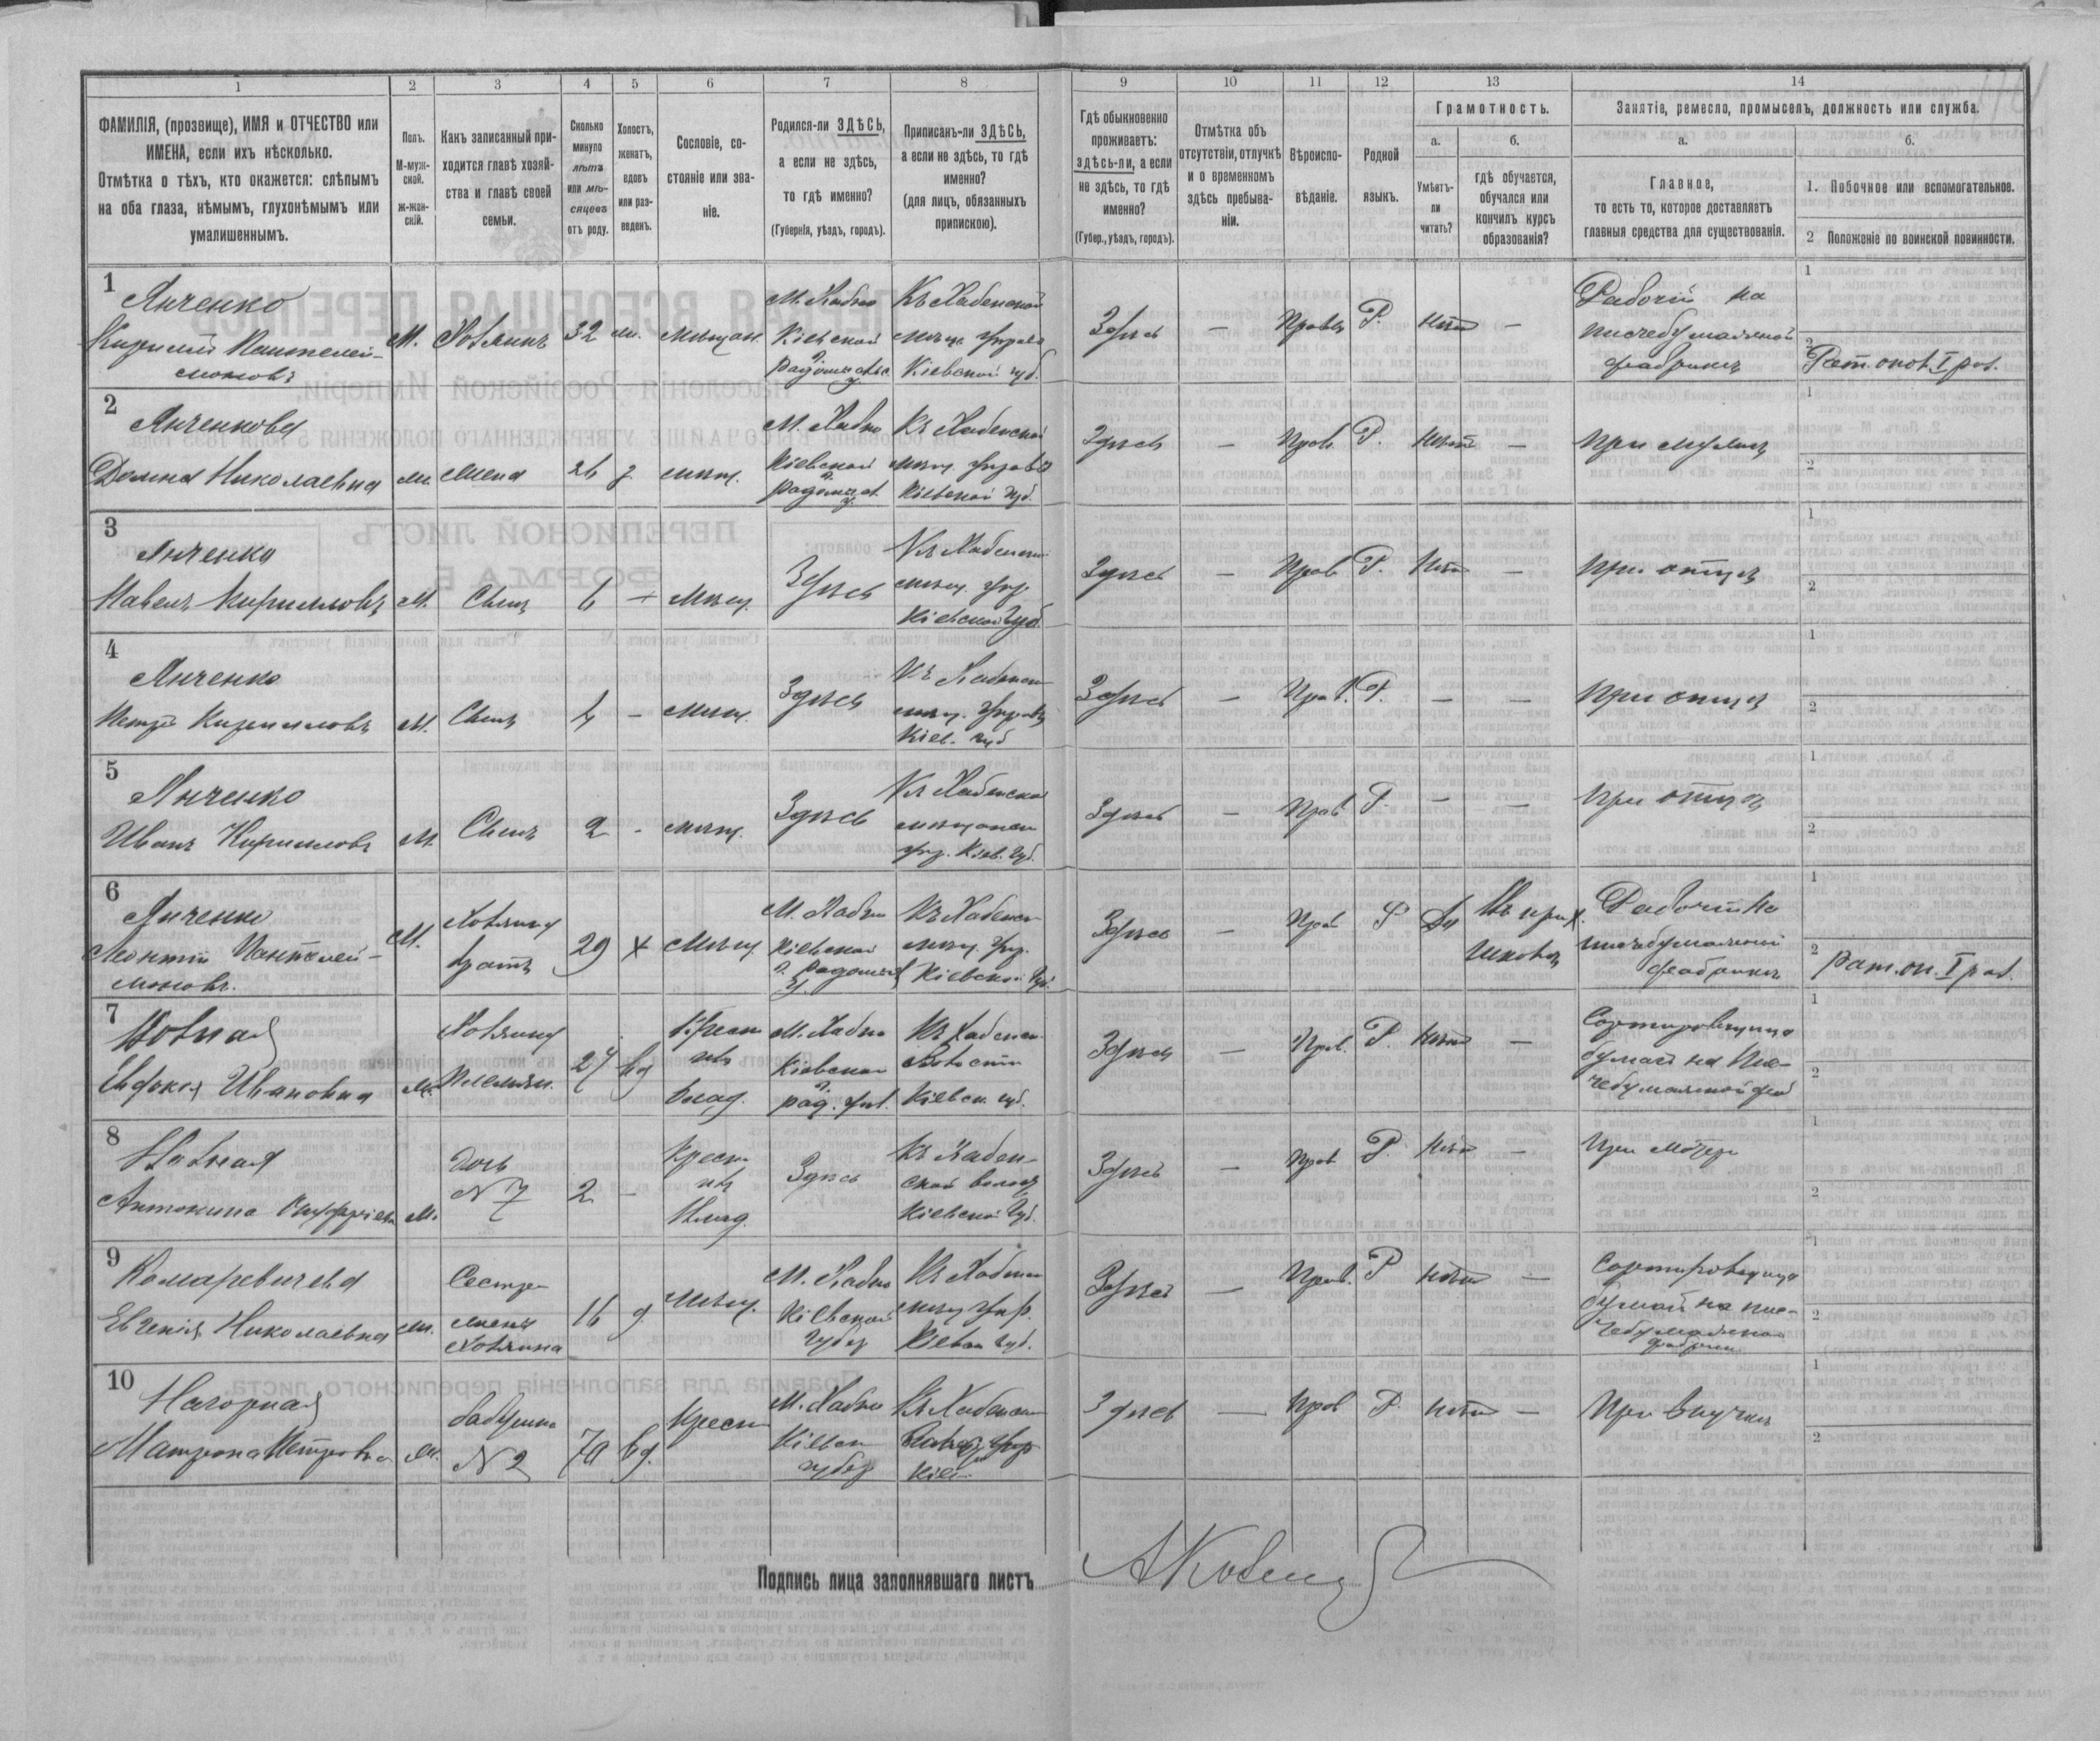 1 2 3 4 5 6 7 8 9 10 11 12 13 14
ФАМИЛІЯ, (прозвище), ИМЯ и ОТЧЕСТВО или
ИМЕНА, если ихъ нѣсколько.
Отмѣтка о тѣхъ, кто окажется: слѣпымъ
на оба глаза, нѣмымъ, глухонѣмымъ или
умалишеннымъ.
Полъ.
М-муж-
ской.
ж-жен-
скій.
Какъ записанный при-
ходится главѣ хозяй-
ства и главѣ своей
семьи.
Сколько
минуло
лѣтъ
или мѣ-
сяцевъ
отъ роду.
Холостъ,
женатъ,
вдовъ
или раз-
веденъ.
Сословіе, со-
стояніе или зва-
ніе.
Родился-ли ЗДѢСЬ,
а если не здѣсь,
то гдѣ именно?
(Губернія, уѣздъ, городъ).
Приписанъ-ли ЗДѢСЬ,
а если не здѣсь, то гдѣ
именно?
(для лицъ, обязанныхъ
припискою).
Гдѣ обыкновенно
проживаетъ:
здѣсь-ли, а если
не здѣсь, то гдѣ
именно?
(Губер., уѣздъ, городъ).
Отмѣтка объ
отсутствіи, отлучкѣ
и о временномъ
здѣсь пребыва-
ніи.
Вѣроиспо-
вѣданіе.
Родной
языкъ.
Грамотность.
а.
Умѣетъ-
ли
читать?
б.
гдѣ обучается,
обучался или
кончилъ курсъ
образованія?
Занятіе, ремесло, промыселъ, должность или служба.
а.
Главное,
то есть то, которое доставляетъ
главныя средства для существованія.
б.
1. Побочное или вспомогательное.
2 Положеніе по воинской повинности.
1
Янченко
Кирилъ Пантелей-
моновъ
М. Хозяинъ 32 ж. мѣщан.
М. Хабно
Кіевской
г. Радомысльс. у.
Къ Хабенской
мѣщ. управѣ
Кіевской губ.
Здѣсь — Правос Р. нѣтъ —
Рабочій на
писчебумажной
фабрикѣ
1
2 Рат. опол. I раз.
2
Янченкова
Домна Николаевна
ж. жена 26 з. мѣщ.
М. Хабно
Кіевской
г. Радомысл. у.
Къ Хабенской
мѣщ. управѣ
Кіевской губ.
Здѣсь — Прав. Р. нѣтъ —
При мужѣ
1
2
3
Янченко
Павелъ Кирилловъ
М. Сынъ 6 — Мѣщ.
Здѣсь
Къ Хабенской
мѣщ. упр.
Кіевской губ.
Здѣсь — Прав. Р. Нѣтъ —
При отцѣ
1
2
4
Янченко
Петръ Кирилловъ
М. Сынъ 4 — мѣщ.
Здѣсь
Къ Хабенск
мѣщ. управѣ
Кіев. губ
Здѣсь — Прав. Р. — —
При отцѣ
1
2
5
Янченко
Иванъ Кирилловъ
М. Сынъ 2 - мѣщ.
Здѣсь
Къ Хабенской
мѣщанск
упр. Кіев. губ.
Здѣсь — Прав Р. — —
При отцѣ
1
2
6
Янченко
Леонтій Пантелей-
моновъ.
М.
Хозяину
братъ
29 х Мѣщ.
М. Хабно
Кіевской
г. Радомысл. у.
Къ Хабенск
мѣщ. упр.
Кіевской губ.
Здѣсь — Прав Р Да
Въ прих.
школѣ
Рабочій на
писчебумажной
фабрикѣ
1
2 Рат. оп. I раз.
7
Евфокія Ивановна
ж.
Хозяину
27 вд
Крест
изъ
влад.
М. Хабно
Кіевской
г. Рад. уѣз.
Къ Хабенск.
волости
Кіевск. губ.
Здѣсь — Прав. Р. Нѣтъ —
Сортировщица
бумаги на пис-
чебумажной фаб
1
2
8
Антонина
ж.
дочь
№ 7
2 —
Крест
изъ
Влад.
Здѣсь
Къ Хабен-
ской волос
Кіевской губ.
Здѣсь — Прав Р. Нѣтъ —
При матери
1
2
9
Комаревичева
Евгенія Николаевна
ж.
Сестра
жены
хозяина
16 д. Мѣщ.
М. Хабно
Кіевской
губер
Къ Хабенск
мѣщ упр.
Кіевск губ.
Здѣсь — Прав. Р нѣтъ —
Сортировщица
бумаги на пис-
чебумажной
фабрики
1
2
10
Нагорная
Матрона Петровна
ж.
бабушка
№ 2
70 вд.
Крест
М. Хабно
Кіевск
губер
Къ Хабенск
Кіев
Здѣсь — Прав Р. нѣтъ —
При внучкѣ
1
2
Подпись лица заполнявшаго листъ